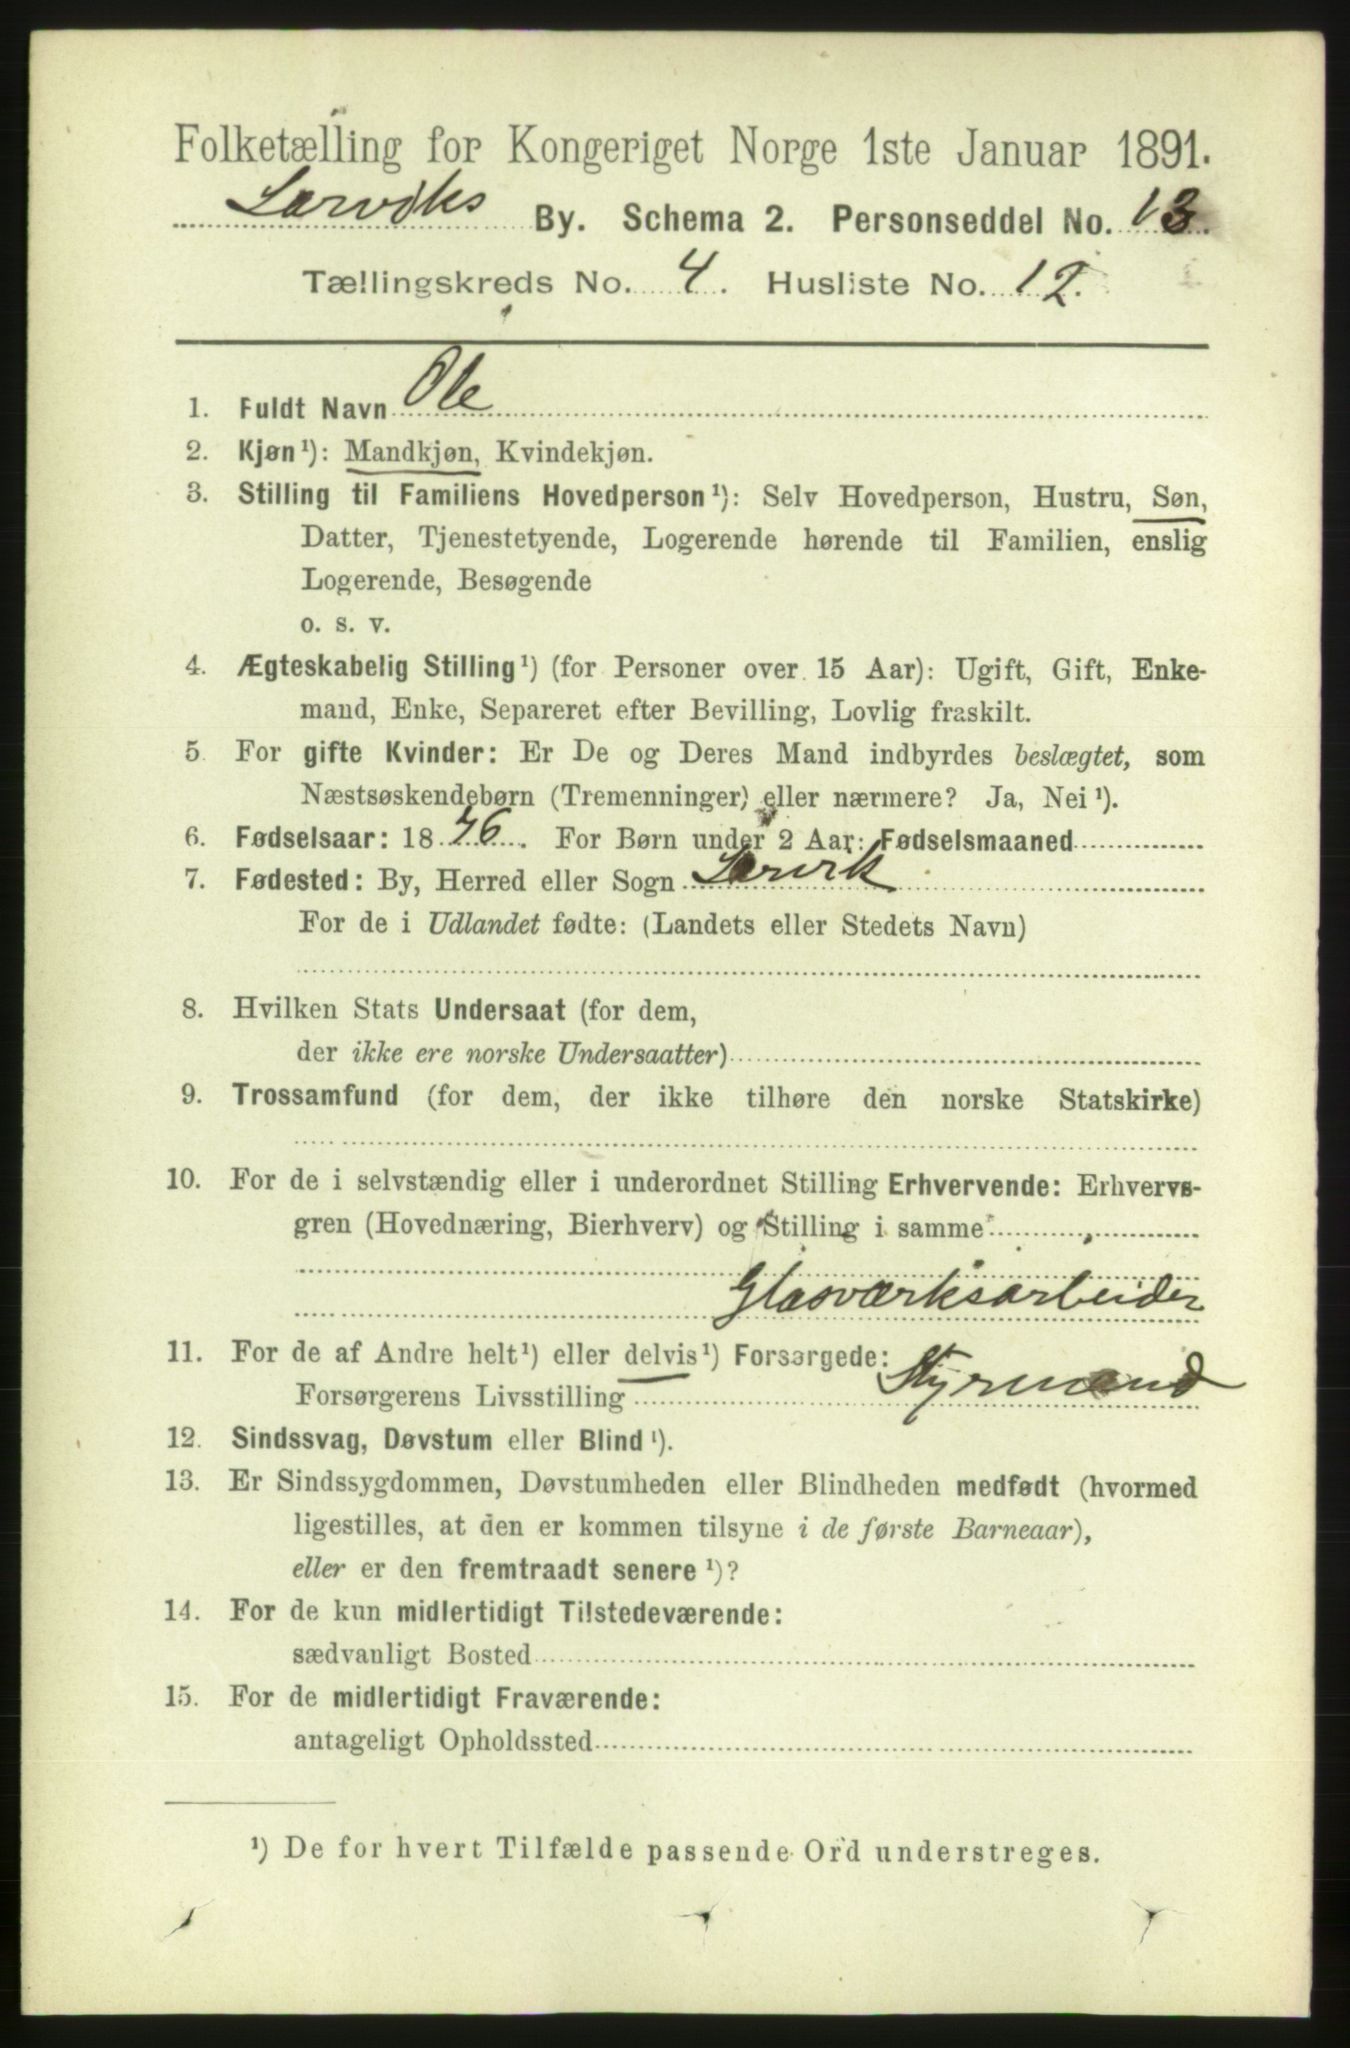 Folketælling for Kongeriget Norge 1ste Januar 1891.
Larviks By. Schema 2. Personseddel No. 13.
Tællingskreds No. 4. Husliste No. 12.
1. Fuldt Navn Ole
2. Kjøn¹): Mandkjøn, Kvindekjøn.
3. Stilling til Familiens Hovedperson¹): Selv Hovedperson, Hustru, Søn,
Datter, Tjenestetyende, Logerende hørende til Familien, enslig
Logerende, Besøgende
o. s. v.
4. Ægteskabelig Stilling¹) (for Personer over 15 Aar): Ugift, Gift, Enke-
mand, Enke, Separeret efter Bevilling, Lovlig fraskilt.
5. For gifte Kvinder: Er De og Deres Mand indbyrdes beslægtet, som
Næstsøskendebørn (Tremenninger) eller nærmere? Ja, Nei¹).
6. Fødselsaar: 1876. For Børn under 2 Aar: Fødselsmaaned
7. Fødested: By, Herred eller Sogn Larvik
For de i Udlandet fødte: (Landets eller Stedets Navn)
8. Hvilken Stats Undersaat (for dem,
der ikke ere norske Undersaatter)
9. Trossamfund (for dem, der ikke tilhøre den norske Statskirke)
10. For de i selvstændig eller i underordnet Stilling Erhvervende: Erhvervs-
gren (Hovednæring, Bierhverv) og Stilling i samme
Glasværksarbeider
11. For de af Andre helt¹) eller delvis¹) Forsørgede:
Forsørgerens Livsstilling Styrmand
12. Sindssvag, Døvstum eller Blind¹).
13. Er Sindssygdommen, Døvstumheden eller Blindheden medfødt (hvormed
ligestilles, at den er kommen tilsyne i de første Barneaar),
eller er den fremtraadt senere¹)?
14. For de kun midlertidigt Tilstedeværende:
sædvanligt Bosted
15. For de midlertidigt Fraværende:
antageligt Opholdssted
¹) De for hvert Tilfælde passende Ord understreges.